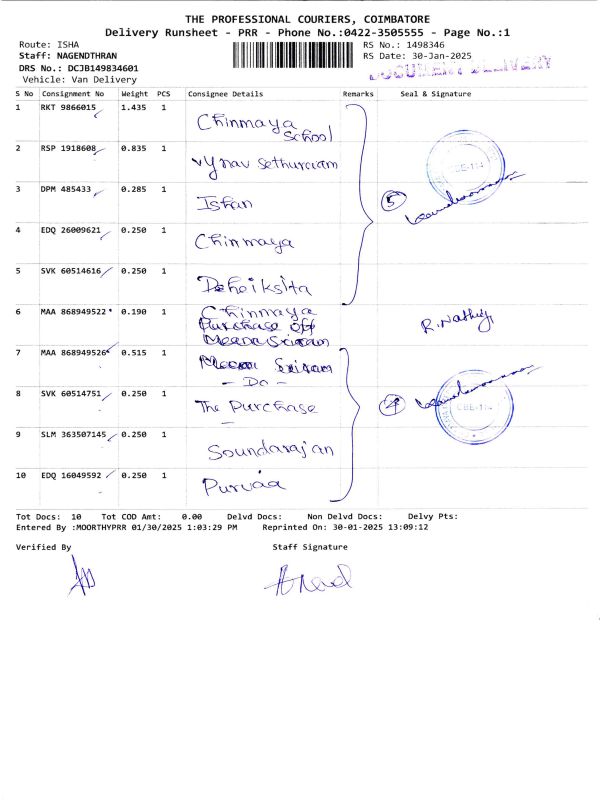 THE PROFESSIONAL COURIERS, COIMBATORE
Delivery Runsheet - PRR - Phone No.:0422-3505555 - Page No.:1
Route: ISHA RS No.: 1498346
Staff: NAGENDTHRAN RS Date: 30-Jan-2025
DRS No.: DCJB149834601 DOCUMENT DELIVERY
Vehicle: Van Delivery
S No Consignment No Weight PCS Consignee Details Remarks Seal & Signature
1 RKT 9866015 1.435 1 Chinmaya School
2 RSP 1918608 0.835 1 Vynav Sethuraam
3 DPM 485433 0.285 1 Ishan 5
4 EDQ 26009621 0.250 1 Chinmaya
5 SVK 60514616 0.250 1 Dheiksita
6 MAA 868949522 0.190 1 Chinmaya Purchase Off Meena Sriram R. Nathiy
7 MAA 868949526 0.515 1 Meena Sriram - Do -
8 SVK 60514751 0.250 1 The Purchase 4
9 SLM 363507145 0.250 1 Soundarajan
10 EDQ 16049592 0.250 1 Purvaa
Tot Docs: 10 Tot COD Amt: 0.00 Delvd Docs: Non Delvd Docs: Delvy Pts:
Entered By :MOORTHYPRR 01/30/2025 1:03:29 PM Reprinted On: 30-01-2025 13:09:12
Verified By Staff Signature